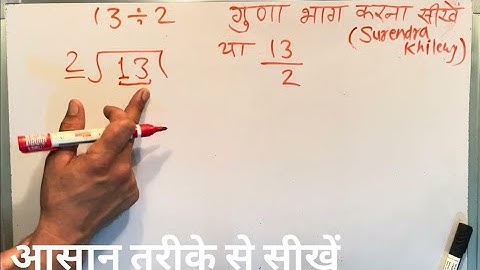 13÷2 गुणा भाग करना सीखें
या 13/2 (Surendra Khilery)
2)13(
आसान तरीके से सीखें